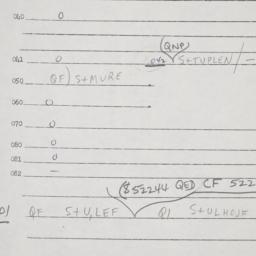 040 0
(QNP)
041 0 042 S+TUPLEN/-
050 QF) S+MURE
060 0
070 0
080 0
081 0
082 -
($52244 QED CF 522
01 QF S+U,LEF Q1 S+ULHOJF